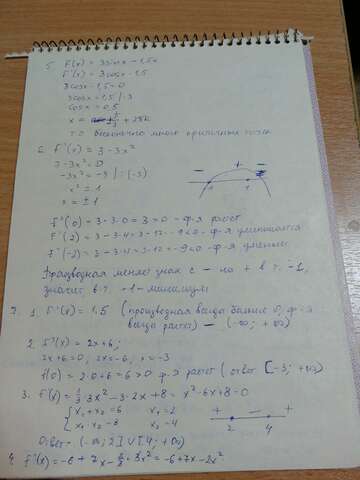 5. f(x) = 3sinx - 1,5x
f'(x) = 3cosx - 1,5
3cosx - 1,5 = 0
3cosx = 1,5 | :3
cosx = 0,5
x = ± π/3 + 2πk
т.о бесконечно много критичных точек
6. f'(x) = 3 - 3x²
3 - 3x² = 0
-3x² = -3 | : (-3)
x² = 1
x = ± 1
- + -
-1 1
f'(0) = 3 - 3·0 = 3 > 0 - ф-я раст
f'(2) = 3 - 3·4 = 3 - 12 = -9 < 0 - ф-я уменьшается
f'(-2) = 3 - 3·4 = 3 - 12 = -9 < 0 ф-я уменьш
Производная меняет знак с - на + в т. -1,
значит, в т. -1 - минимум
7. 1. f'(x) = 1,5 (производная всегда больше 0, ф-я
всегда растёт) - (-∞; +∞)
2. f'(x) = 2x + 6;
2x + 6 = 0; 2x = -6, x = -3
f(0) = 2·0 + 6 = 6 > 0 ф-я растет (ответ [-3; +∞)
3. f'(x) = 1/3·3x² - 3·2x + 8 = x² - 6x + 8 = 0
x₁ + x₂ = 6 x₁ = 2
x₁ · x₂ = 8 x₂ = 4
+ - +
2 4
Ответ - (-∞; 2] ∪ [4; +∞)
4. f'(x) = -6 + 7x - 2/3·3x² = -6 + 7x - 2x²